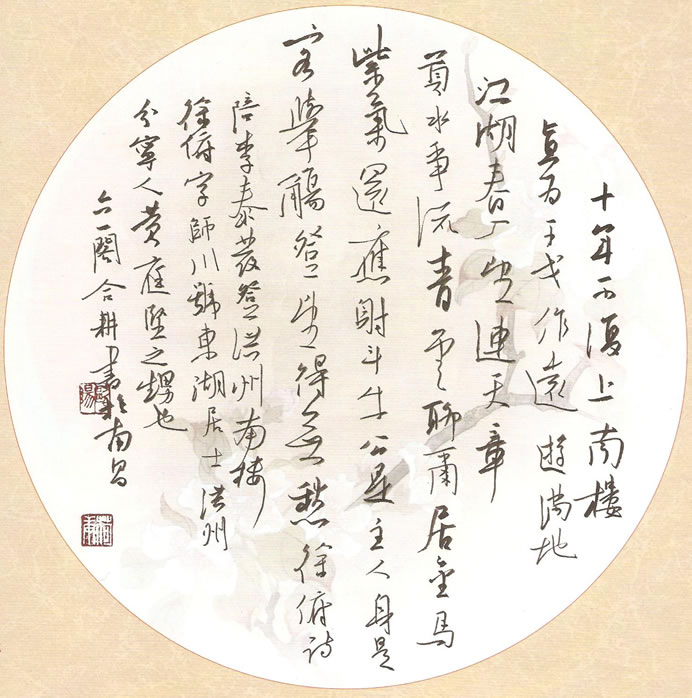 十年不復上南樓
直為干戈作遠遊滿地
江湖春入望連天章
貢水爭流青雲聊爾居金馬
紫氣還應射斗牛公是主人身是
客舉觴登望得無愁徐俯詩
陪李泰發登洪州南樓
徐俯字師川號東湖居士洪州
分寧人黃庭堅之甥也
六一閣合耕書於南昌